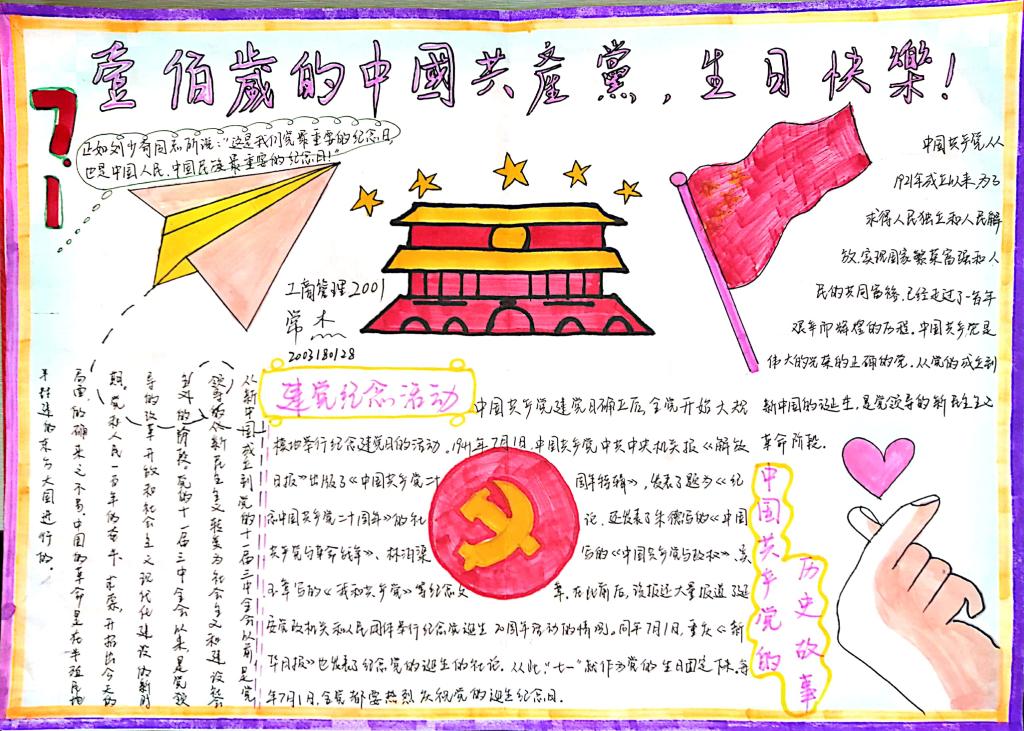 壹佰歲的中國共產黨，生日快樂！
7.1
正如刘少奇同志所说：“这是我们党最重要的纪念日，
也是中国人民、中国民族最重要的纪念日！”
工商管理2001
常木
2003180128
中国共产党，从
1921年成立以来，为了
求得人民独立和人民解
放，实现国家繁荣富强和人
民的共同富裕，已经走过了一百年
艰辛而辉煌的历程。中国共产党是
伟大的光荣的正确的党。从党的成立到
新中国的诞生，是党领导的新民主主义
革命阶段。
从新中国成立到党的十一届三中全会以前是党
领导的从新民主主义转变为社会主义和建设社会
主义的阶段。党的十一届三中全会以来，是党领
导的改革开放和社会主义现代化建设的新时
期。党和人民一百年的奋斗、求索，开拓出今天的
局面，的确来之不易。中国的革命是在半殖民地
半封建的东方大国进行的。
建党纪念活动
中国共产党建党日确立后，全党开始大规
模地举行纪念建党日的活动。1941年7月1日，中国共产党中共中央机关报《解放
日报》出版了《中国共产党二十周年特辑》，发表了题为《纪
念中国共产党二十周年》的社论，还发表了朱德写的《中国
共产党与革命战争》、林伯渠写的《中国共产党与政权》、吴
玉章写的《我和共产党》等纪念文章。在此前后，该报还大量报道了延
安党政机关和人民团体举行纪念党诞生20周年活动的情况。同年7月1日，重庆《新
华日报》也发表了纪念党的诞生的社论。从此，“七一”就作为党的生日固定下来。每
年7月1日，全党都要热烈庆祝党的诞生纪念日。
中国共产党的
历史故事